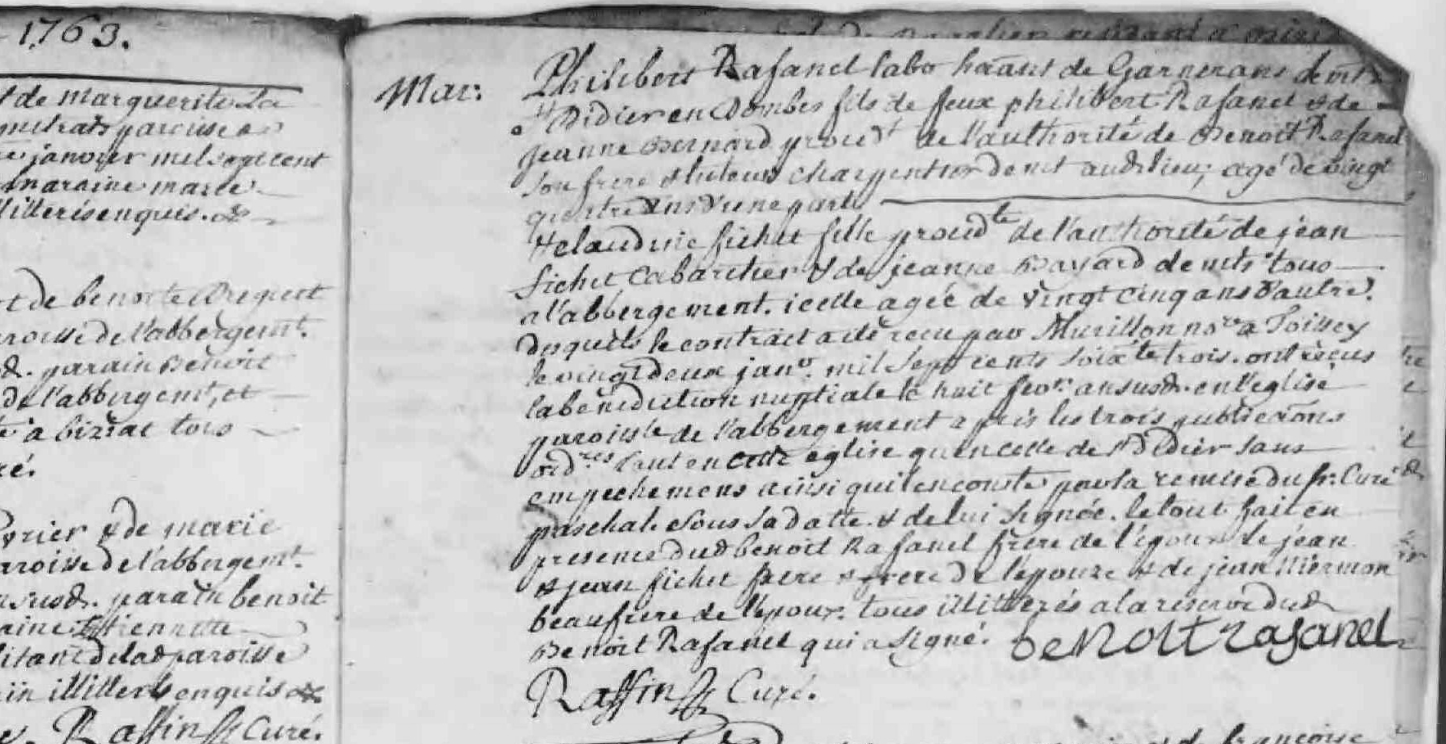 1763.
de marguerite La
janvier mil sept cent
maraine marie
illiteris enquis. &
et de benoite Brequet
paroisse de l'abbergemt.
parain Benoit
de l'abbergemt, et
a bizial tous
curé.
fevrier & de marie
paroisse de l'abbergemt.
susd. parain benoit
maraine Etiennette
habitant de lad paroisse
illitterés enquis &
Raffin Curé.
Mar:
Philibert Rafanel labo hatant de Garnerans demt a
st Didier en Dombes fils de feux philibert Rafanel & de
jeanne Bernard proced.t de l'authorité de Benoit Rafanel
son frere & tuteur charpentier demt audit lieu, agé de vingt
quatre ans d'une part
Et claudine fichet fille proced.te de l'authorité de jean
fichet Cabartier & de jeanne Bayard demts tous
a l'abbergement. icelle agée de vingt cinq ans d'autre.
desquels le contract a été recu par Murillon nore a Toissey
le vingt deux janv. mil sept cents soixte trois. ont recus
la benediction nuptiale le huit fevr. an susd. en l'eglise
paroissle de l'abbergement apris les trois publications
ordres tant en cette eglise qu'en celle de st Didier sans
empechemens ainsi qu'il en conste par la remise du sr. Curé
paschal sous sa datte & de lui signée. le tout fait en
presence dud benoit Rafanel frere de l'époux de jean
& jean fichet pere & frere de l'epouze & de jean Miermon
beaufrere de l'époux. tous illitterés a la reserve dud
Benoit Rafanel qui a signé. benoit rafanel
Raffin Curé.
& de françoise